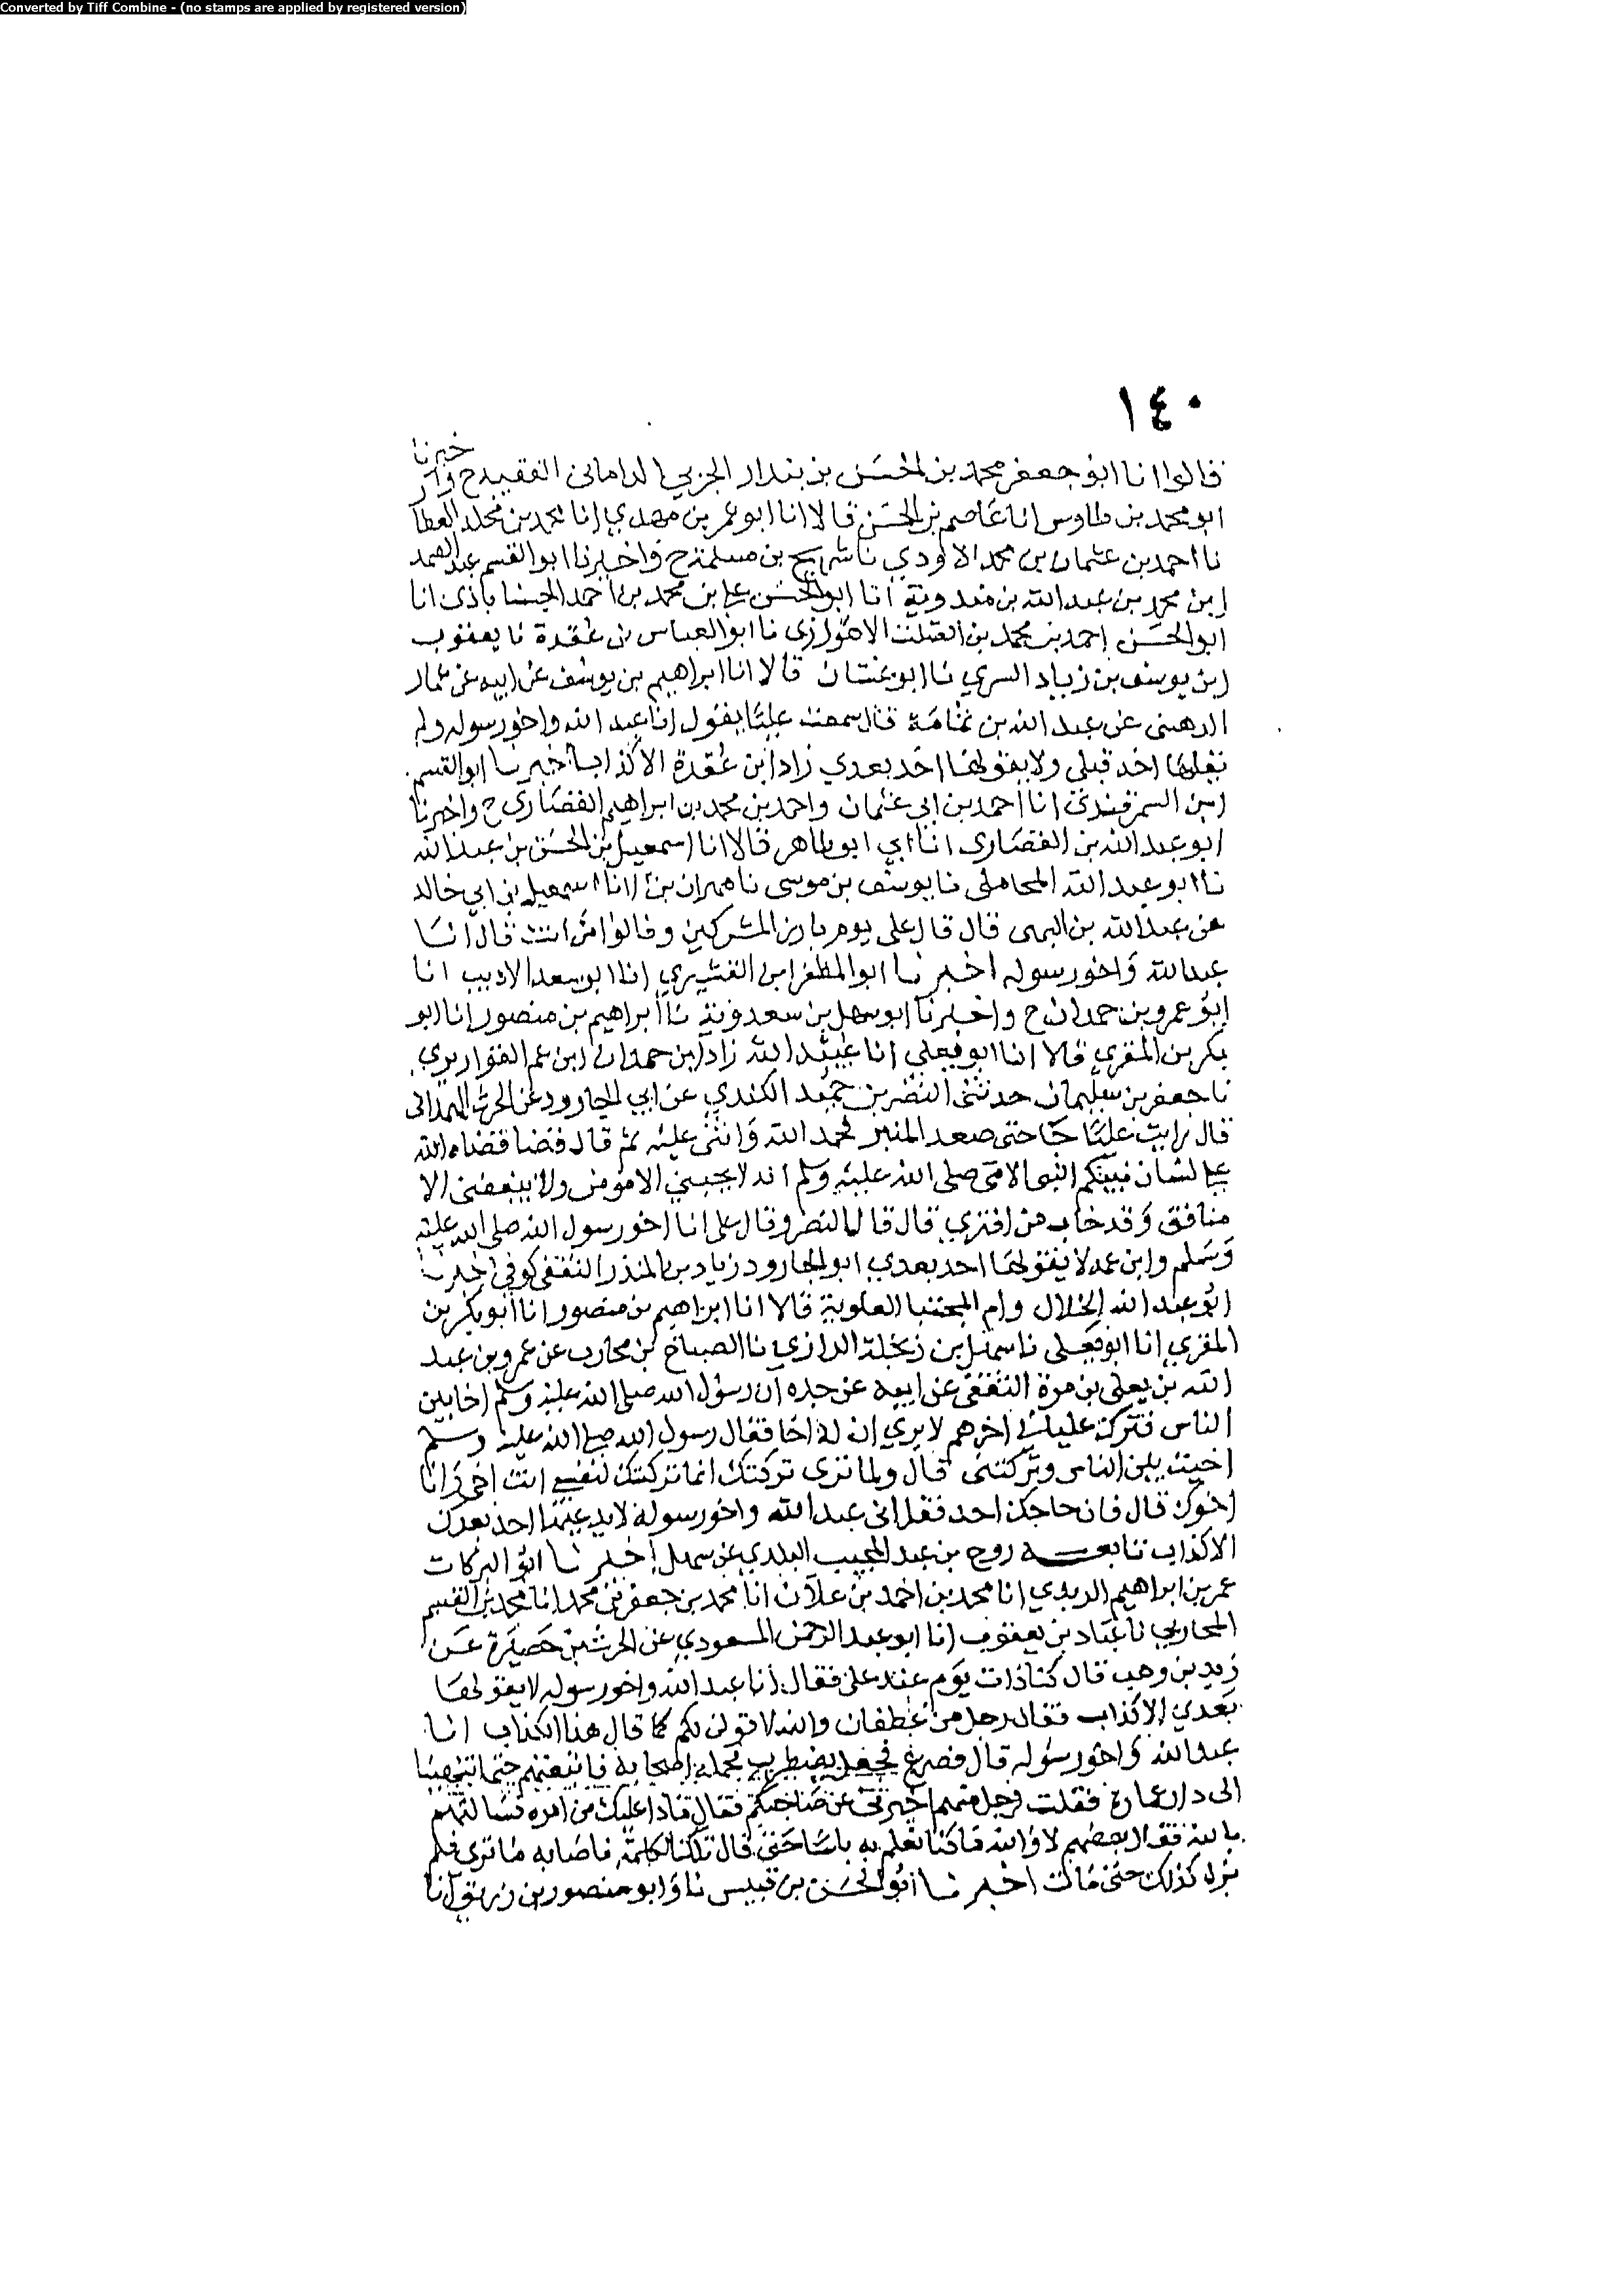 Converted by Tiff Combine - (no stamps are applied by registered version)
١٤٠
قالوا انا ابو جعفر محمد بن الحسن بن بندار الفقيه ح واخبرنا
ابو محمد بن طاوس انا عاصم بن الحسن قالا انا ابو عمر بن مهدي انا محمد بن مخلد العطار
نا احمد بن عثمان بن محمد الاودي نا شريح بن مسلمة ح واخبرنا ابو القسم عبد الصمد
ابن محمد بن عبد الله بن مندوية انا ابو الحسن علي بن محمد بن احمد الحسناباذى انا
ابو الحسن احمد بن محمد بن الصلت الاهوازى نا ابو العباس بن عقدة نا يعقوب
ابن يوسف بن زياد السري نا ابو غسان قالا انا ابراهيم بن يوسف عن ابيه عن عمار
الدهنى عن عبد الله بن ثمامة قال سمعت عليا يقول انا عبد الله واخو رسوله ولم
يقلها احد قبلى ولا يقولها احد بعدي زاد ابن عقدة الا كذاب اخبرنا ابو القسم
ابن السمرقندى انا احمد بن ابى عثمان واحمد بن محمد بن ابراهيم القصارى ح واخبرنا
ابو عبد الله بن القصارى انا ابي ابو طاهر قالا انا اسمعيل بن الحسن بن عبد الله
نا ابو عبد الله المحاملى نا يوسف بن موسى نا مهران بن انا اسمعيل بن ابي خالد
عن عبد الله بن البهى قال قال على يوم بارز المشركين وقالوا من انت قال انا
عبد الله واخو رسوله اخبرنا ابو المظفر ابن القشيري انا ابو سعد الاديب انا
ابو عمرو بن حمدان ح واخبرنا ابو سهل بن سعدوية نا ابراهيم بن منصور انا ابو
بكر بن المقري قالا انا ابو يعلي انا عبيد الله زاد ابن حمدان ابن عم القواريري
نا جعفر بن سليمان حدثنى النضر بن حميد الكندي عن ابي الجارود عن الحرث الهمدانى
قال رايت عليا جا حتى صعد المنبر فحمد الله واثنى عليه ثم قال قضا قضاه الله
على لسان نبيكم النبى الامى صلى الله عليه وسلم انه لا يحبني الا مؤمن ولا يبغضنى الا
منافق وقد خاب من افتري قال قال النضر وقال على انا اخو رسول الله صلى الله عليه
وسلم وابن عمه لا يقولها احد بعدي ابو الجارود زياد بن المنذر الثقفى كوفى اخبرنا
ابو عبد الله الخلال وام المجتبا العلوية قالا انا ابراهيم بن منصور انا ابو بكر بن
المقري انا ابو يعلى نا سهل بن زنجلة الرازي نا الصباح بن محارب عن عمرو بن عبد
الله بن يعلى بن مرة الثقفى عن ابيه عن جده ان رسول الله صلى الله عليه وسلم اخا بين
الناس فترك عليا في اخرهم لا يري ان له اخا فقال رسول الله صلى الله عليه وسلم
اخيت بين الناس وتركتنى قال ولما ترى تركتك انما تركتك لنفسي انت اخى وانا
اخوك قال فان حاجك احد فقل انى عبد الله واخو رسوله لا يدعيها احد بعدك
الا كذاب تابعه روح بن عبد المجيب البلدي عن سهل اخبرنا ابو البركات
عمر بن ابراهيم الزيدي انا محمد بن احمد بن علان انا محمد بن جعفر بن محمد انا محمد بن القسم
المحاربي نا عباد بن يعقوب انا ابو عبد الرحمن المسعودي عن الحرث بن حصيرة عن
زيد بن وهب قال كنا ذات يوم عند على فقال انا عبد الله واخو رسوله لا يقولها
بعدي الا كذاب فقال رجل من غطفان والله لاقولن لكم كما قال هذا الكذاب انا
عبد الله واخو رسوله قال فصرع فجعل يضطرب فحمله اصحابه فاتبعتهم حتى انتهينا
الى دار عمارة فقلت لرجل منهم اخبرنى عن صاحبكم فقال ماذا عليك من امره فسالتهم
بالله فقال بعضهم لا والله ما كنا نعلم به باسا حتى قال تلك الكلمة فاصابه ما ترى فلم
يزل كذلك حتى مات اخبرنا ابو الحسن بن قبيس نا وابو منصور بن زريق انا